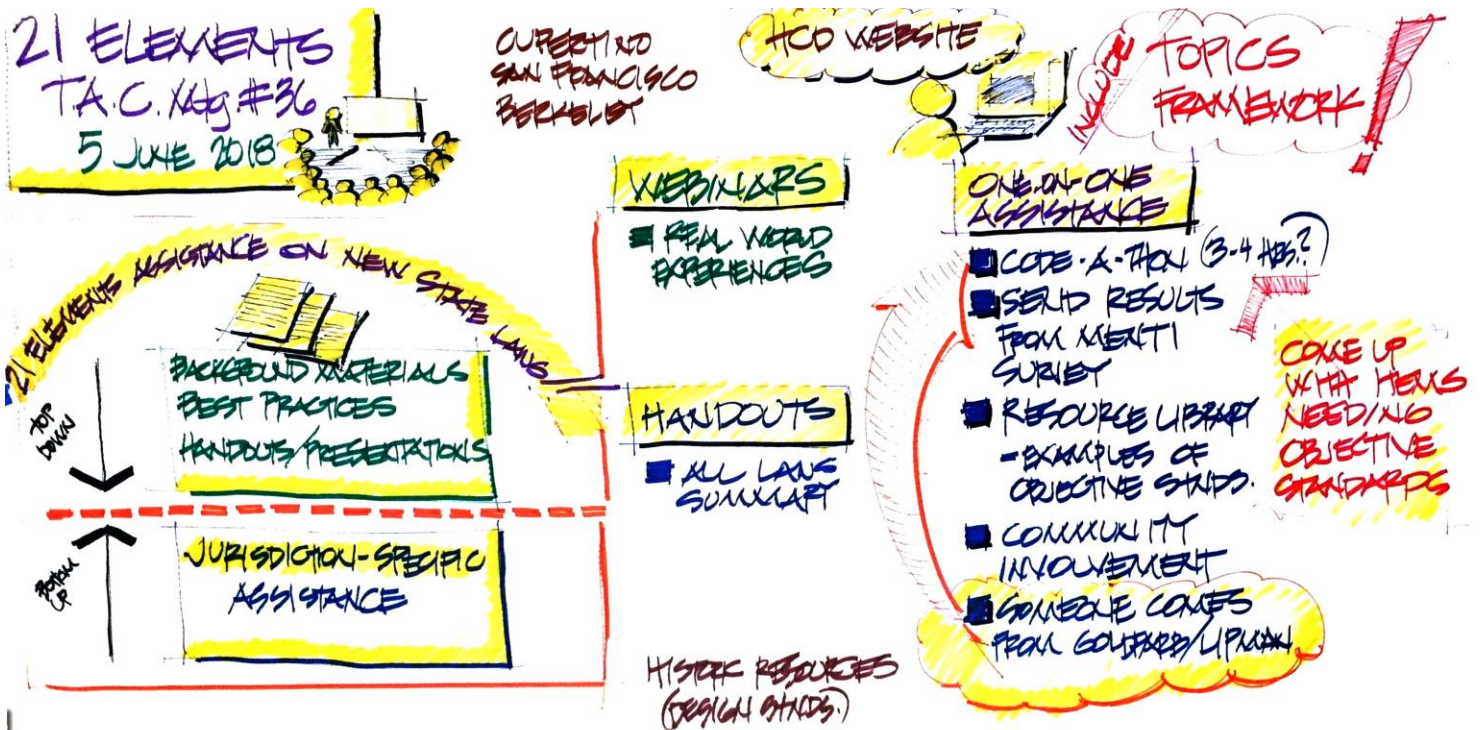 21 ELEMENTS
T.A.C. Mtg. #36
5 JUNE 2018
CUPERTINO
SAN FRANCISCO
BERKELEY
HCD WEBSITE
INCLUDE
TOPICS
FRAMEWORK!
21 ELEMENTS ASSISTANCE ON NEW STATE LAWS
TOP
DOWN
BACKGROUND MATERIALS
BEST PRACTICES
HANDOUTS/PRESENTATIONS
BOTTOM
UP
JURISDICTION-SPECIFIC
ASSISTANCE
WEBINARS
REAL WORLD
EXPERIENCES
HANDOUTS
ALL LAWS
SUMMARY
HISTORIC RESOURCES
(DESIGN STNDS.)
ONE-ON-ONE
ASSISTANCE
CODE-A-THON (3-4 HRS.?)
SEND RESULTS
FROM MENTI
SURVEY
RESOURCE LIBRARY
- EXAMPLES OF
OBJECTIVE STNDS.
COMMUNITY
INVOLVEMENT
SOMEONE COMES
FROM GOLDFARB/LIPMAN
COME UP
WITH ITEMS
NEEDING
OBJECTIVE
STANDARDS